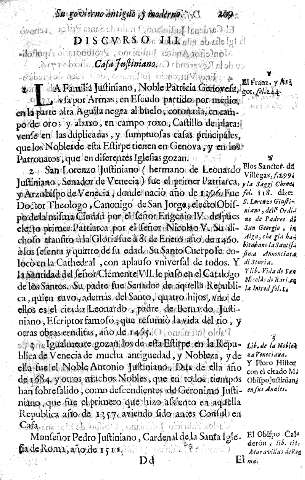 Su govierno antiguo, y moderno. 209
DISCURSO III.
Casa Justiniano.
1. LA Familia Justiniano, Noble Patricia Genovesa,
usa por Armas, en Escudo partido por medio,
en la parte alta Aguila negra al buelo, coronada, en cam-
po de oro: y abaxo, en campo roxo, Castillo de plata:
vense en las duplicadas, y sumptuosas casas principales,
que los Nobles de esta Estirpe tienen en Genova, y en los
Patronatos, que en diferentes Iglesias gozan.
2. San Lorenzo Justiniano (hermano de Leonardo
Justiniano, Senador de Venecia) fue el primer Patriarca,
y Arzobispo de Venecia, donde nacio año de 1396. Fue
Doctor Theologo, Canonigo de San Jorge, electo Obis-
po de la misma Ciudad por el Sr. Eugenio IV. despues
electo primer Patriarca por el Señor Nicolao V. Su di-
choso transito a la Gloria fue à 8. de Enero año de 1460.
à los setenta y quatro de su edad. Su Santo Cuerpo se co-
locò en la Cathedral, con aplauso universal de todos. Y
la Santidad del señor Clemente VII. le puso en el Catalogo
de los Santos. Su padre fue Senador de aquella Republi-
ca, quien tuvo, ademas del Santo, quatro hijos, uno de
ellos es el citado Leonardo, padre de Bernardo Justi-
niano, Escriptor famoso, que resumiò la vida del tio, y
otras obras eruditas, año de 1465.
3. Igualmente gozan los de esta Estirpe en la Repu-
blica de Venecia de mucha antiguedad, y Nobleza, y de
ella fue el Noble Antonio Justiniano, Dux de ella año
de 1684. y otros muchos Nobles, que en todos tiempos
han sobresalido, como descendientes de Geronimo Justi-
niano, que fue el primero que hizo assiento en aquella
Republica año de 1357. aviendo sido antes Consul en
Casa.
Monseñor Pedro Justiniano, Cardenal de la Santa Igle-
sia de Roma, año de 1511.
Dd El
1
El Franc. y Ara
got. fol. 244.
2
Flos Sanctor. de
Villegas,
S. Lorenzo Giusti-
niano,
3
Lib. de la Nobleza
Veneciana.
con el citado M.
Obispo Justiniano
en sus Anales.
El Obispo Cal-
deròn,